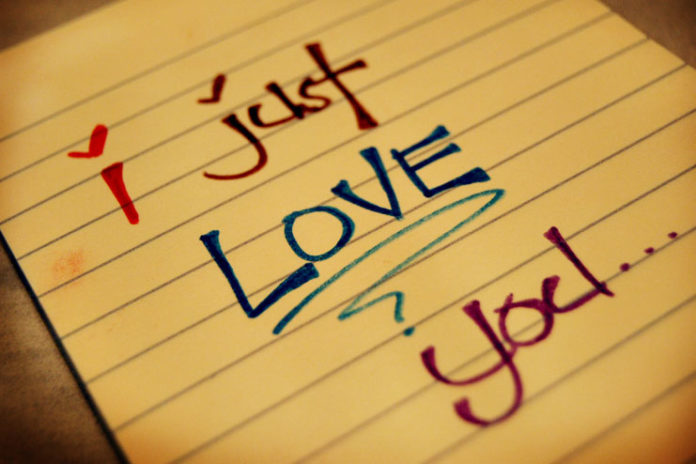 i just
LOVE
you...